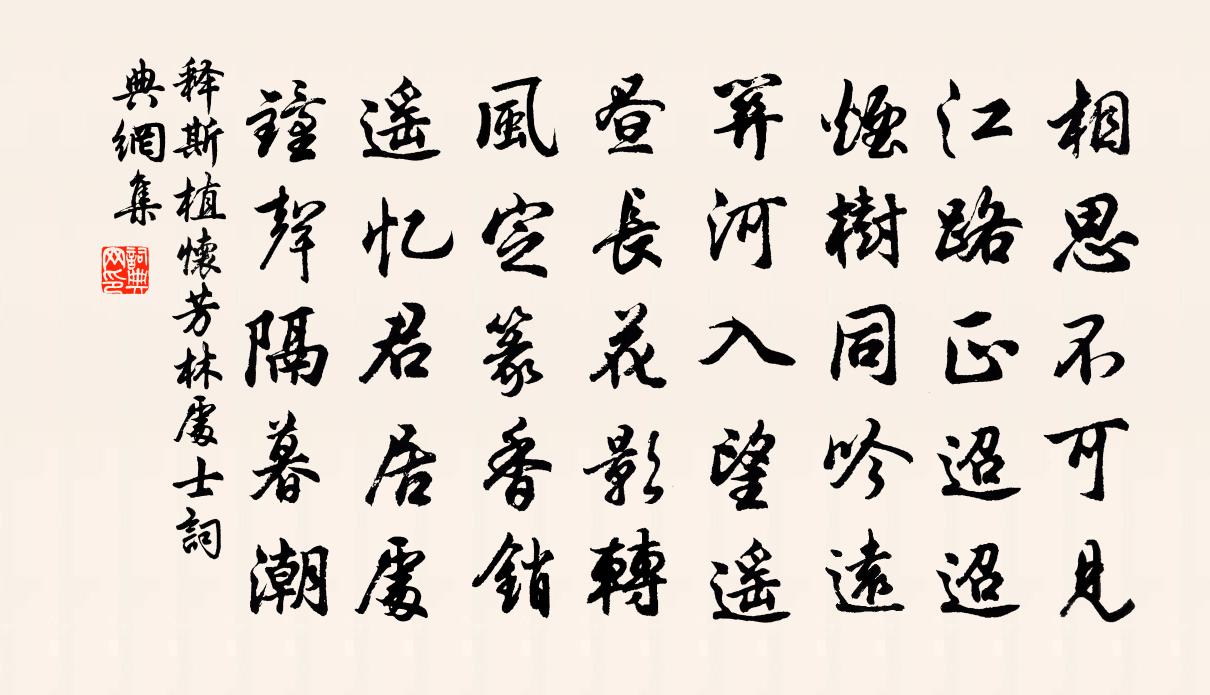 相思不可見
江路正迢迢
煙樹同吟遠
關河入望遥
晝長花影轉
風定篆香銷
遥忆君居處
鐘聲隔暮潮
释斯植懷芳林處士詞
典網集
詞典
网印